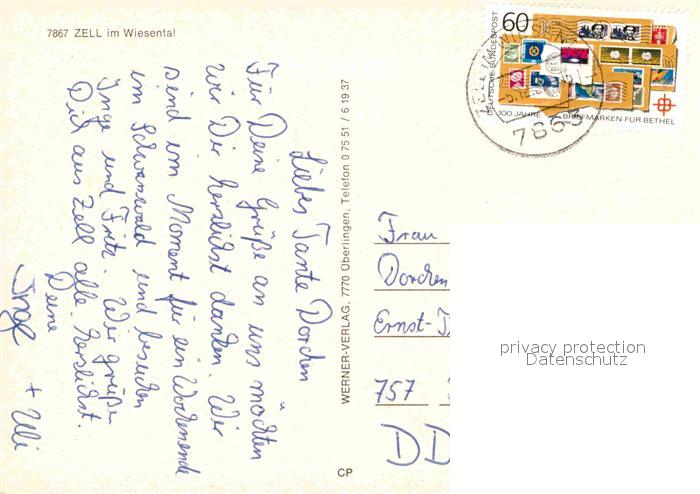 7867 ZELL im Wiesental
Liebes Tante Dorchen
Für Deine Grüße an uns möchten
wir Dir herzlichst danken. Wir
sind im Moment für ein Wochenende
im Schwarzwald und besuchen
Inge und Fritz. Wir grüßen
Dich aus Zell alle herzlichst.
Deine
Inge + Uli
WERNER-VERLAG, 7770 Überlingen, Telefon 0 75 51 / 6 19 37
CP
60
DEUTSCHE BUNDESPOST
100 JAHRE BRIEFMARKEN FÜR BETHEL
ZELL IM WIESENTAL
7863
Frau
Dorchen
Ernst-
757
DD
privacy protection
Datenschutz